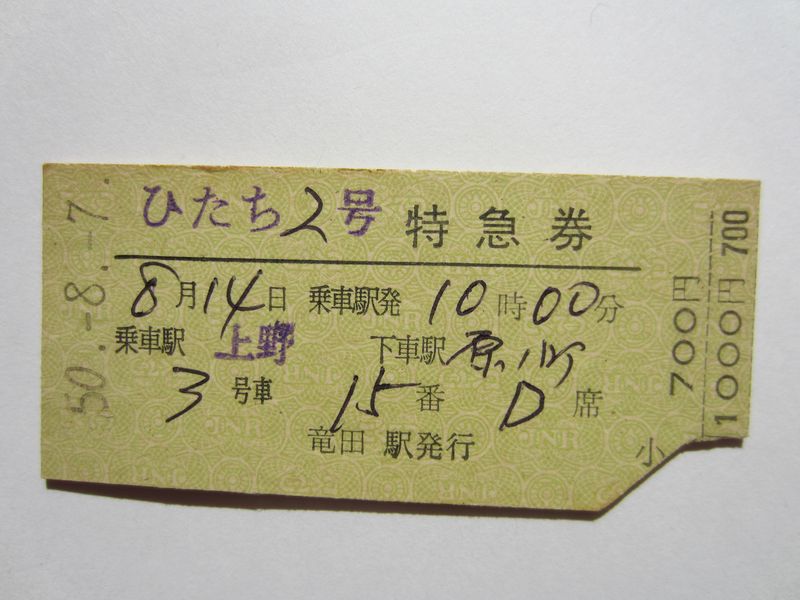 ひたち2号 特急券
8月14日 乗車駅発 10時00分
乗車駅 上野 下車駅 原ノ町
3号車 15番 D席
竜田 駅発行
小
50.-8.-7.
700円
1000円 700
JNR